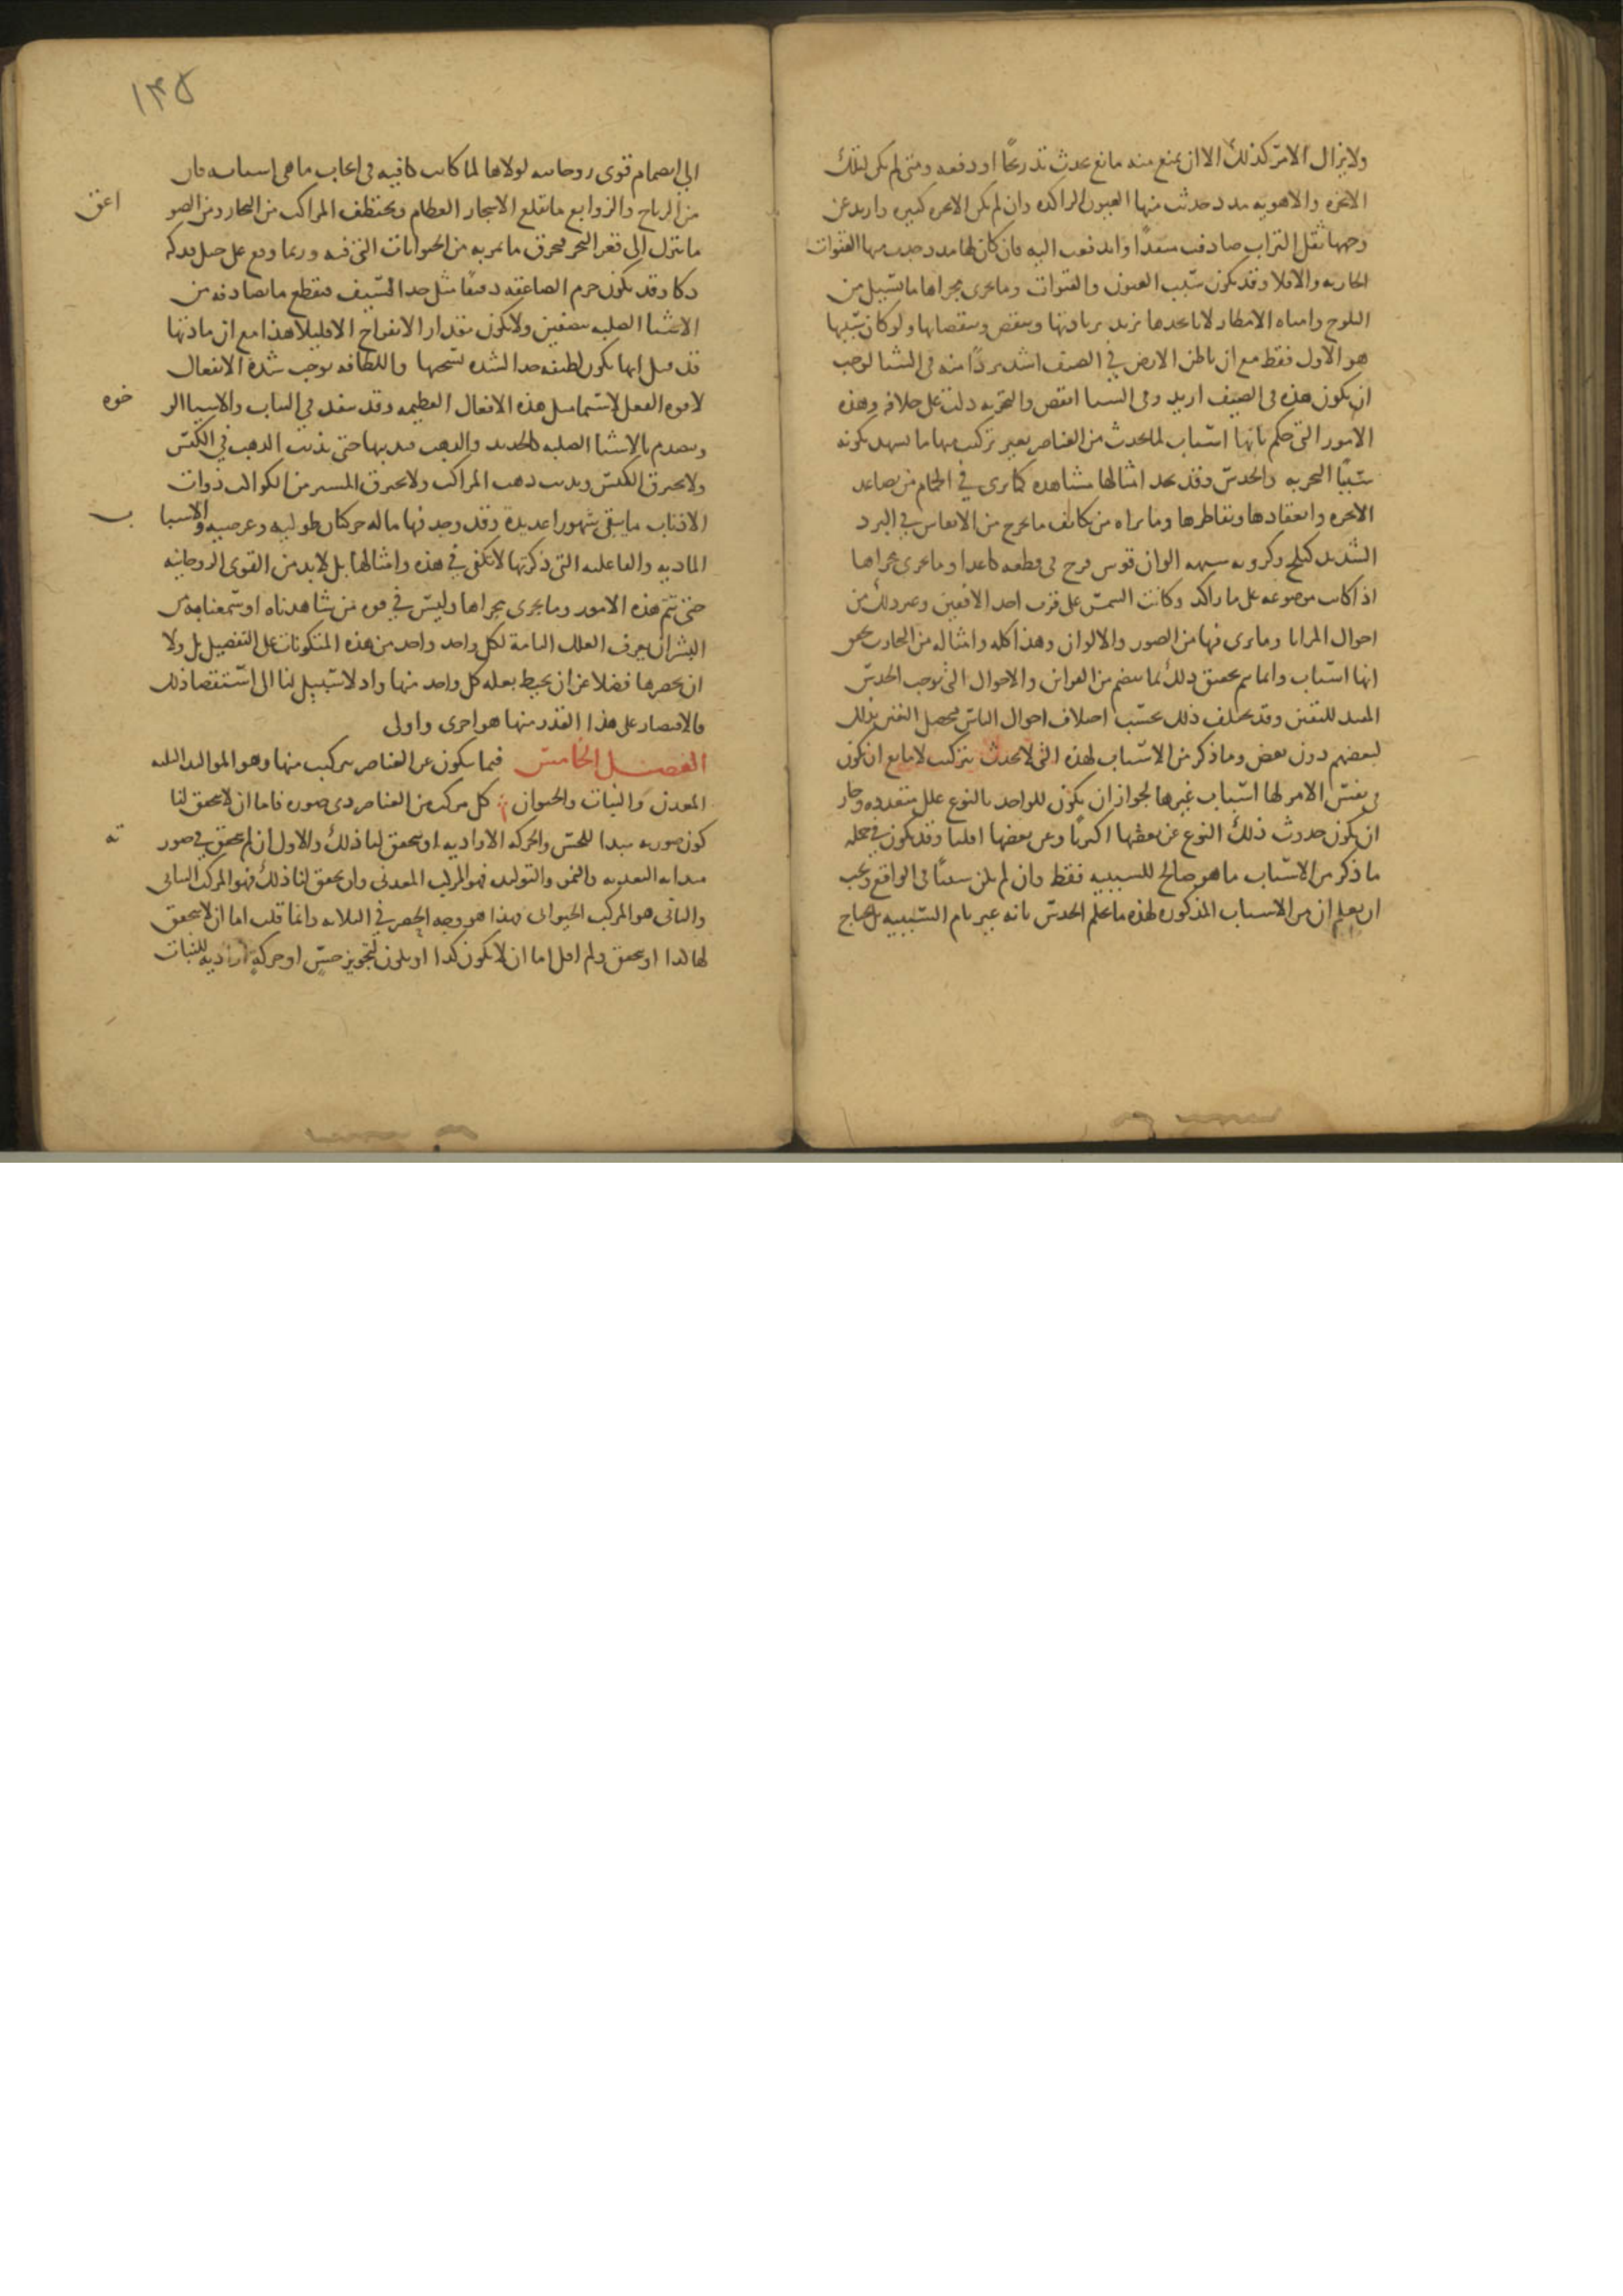 ولا يزال الامر كذلك الا ان يمنع منه مانع يحدث تدريجا او دفعه ومتى لم يكن لتلك
الابخره والاهويه مدد حدثت منها العيون الراكده وان لم يكن الابخره كثيره واريد عن
وجهها ثقل التراب صادفت منفذا واندفعت اليه فان كان لها مدد حدثت منها القنوات
الجاريه والا فلا وقد يكون سبب العيون والقنوات وما يجرى مجراها ما يسيل من
الثلوج ومياه الامطار لانا نجدها تزيد بزيادتها وتنقص بنقصانها ولو كان سببها
هو الاول فقط مع ان باطن الارض في الصيف اشد بردا منه فى الشتا لوجب
ان يكون هذه فى الصيف ازيد وفى الشتا انقص والتجربه دلت على خلافه وهذه
الامور التى حكم بانها اسباب لما يحدث من العناصر بغير تركيب منها ما يشهد بكونه
سببا التجربه والحدس وقد نجد امثالها مشاهده كما يرى في الحمام من تصاعد
الابخره وانعقادها وتقاطرها وما نراه من تكاثف ما يخرج من الانفاس في البرد
الشديد كثلج وكرويه شبيهه الوان قوس قزح فى قطعه كاغذ او ما يجرى مجراها
اذا كانت موضوعه على ما راكد وكانت الشمس على قرب احد الافقين وغير ذلك من
احوال المرايا وما يرى فيها من الصور والالوان وهذا كله وامثاله من التجارب يحقق
انها اسباب وانما يتم تحقيق ذلك بما ينضم من القراين والاحوال التى توجب الحدس
المفيد لليقين وقد يختلف ذلك بحسب اختلاف احوال الناس فيحصل اليقين بذلك
لبعضهم دون بعض وما ذكر من الاسباب لهذه التى لا يحدث بتركيب لا مانع ان يكون
فى نفس الامر لها اسباب غيرها لجواز ان يكون للواحد بالنوع علل متعدده وجاز
ان يكون حدوث ذلك النوع عن بعضها اكثريا وعن بعضها اقليا وقد يكون في جمله
ما ذكر من الاسباب ما هو صالح للسببيه فقط وان لم يكن سببا فى الواقع ويجب
ان يعلم ان من الاسباب المذكوره لهذه ما يحكم الحدس بانه غير تام السببيه بل يحتاج
١٣٥
الى انضمام قوى روحانيه لولاها لما كانت كافيه فى ايجاب ما هى اسبابه فان
من الرياح والزوابع ما تقلع الاشجار العظام وتختطف المراكب من البحار ومن الصو
اعق
ما ينزل الى قعر البحر فيحرق ما يمر به من الحيوانات التى فيه وربما وقع على جبل فدكه
دكا وقد يكون جرم الصاعقه دقيقا مثل حد السيف فيقطع ما يصادفه من
الاشيا الصلبه بنصفين ولا يكون مقدار الانفراج الا قليلا هذا مع ان مادتها
قد قيل انها يكون لطيفه جدا لشده تسخنها واللطافه يوجب شدة الانفعال
لا قوه الفعل لا سيما مثل هذه الافعال العظيمه وقد تنفذ في الثياب والاشيا الر
خوه
وتصدم بالاشيا الصلبه كالحديد والذهب فتذيبها حتى يذيب الذهب في الكيس
ولا يحترق الكيس ويذيب ذهب المراكب ولا يحترق السير من الكواكب ذوات
الاذناب ما يبقى شهورا عديدة وقد وجد فيها ما له حركتان طوليه وعرضيه والاسبا
ب
الماديه والفاعليه التى ذكرتها لا تكفى في هذه وامثالها بل لا بد من القوى الروحانيه
حتى تتم هذه الامور وما يجرى مجراها وليس في قوه من شاهدناه او سمعنا به من
البشر ان يعرف العلل التامة لكل واحد واحد من هذه المتكونات على التفصيل بل ولا
ان يحصرها فضلا عن ان يحيط بعله كل واحد منها واذ لا سبيل لنا الى استقصا ذلك
فالاقتصار على هذا القدر منها هو احرى واولى
الفصل الخامس فيما يتكون عن العناصر بتركيب منها وهو المواليد الثلثه
المعدن والنبات والحيوان كل مركب من العناصر ذى صوره فاما ان لا يتحقق لنا
كون صورته مبدا للحس والحركه الاراديه او يتحقق لنا ذلك والاول ان لم يتحقق في صور
ته
مبدايه التغذيه والنمو والتوليد فهو المركب المعدنى وان تحقق لنا ذلك فهو المركب النباتى
والثانى هو المركب الحيوانى فهذا هو وجه الحصر في الثلاثه وانما قلت اما ان لا يتحقق
لها كذا او يتحقق ولم اقل اما ان لا يكون كذا او يكون لتجويز حس او حركة ارادية للنبات